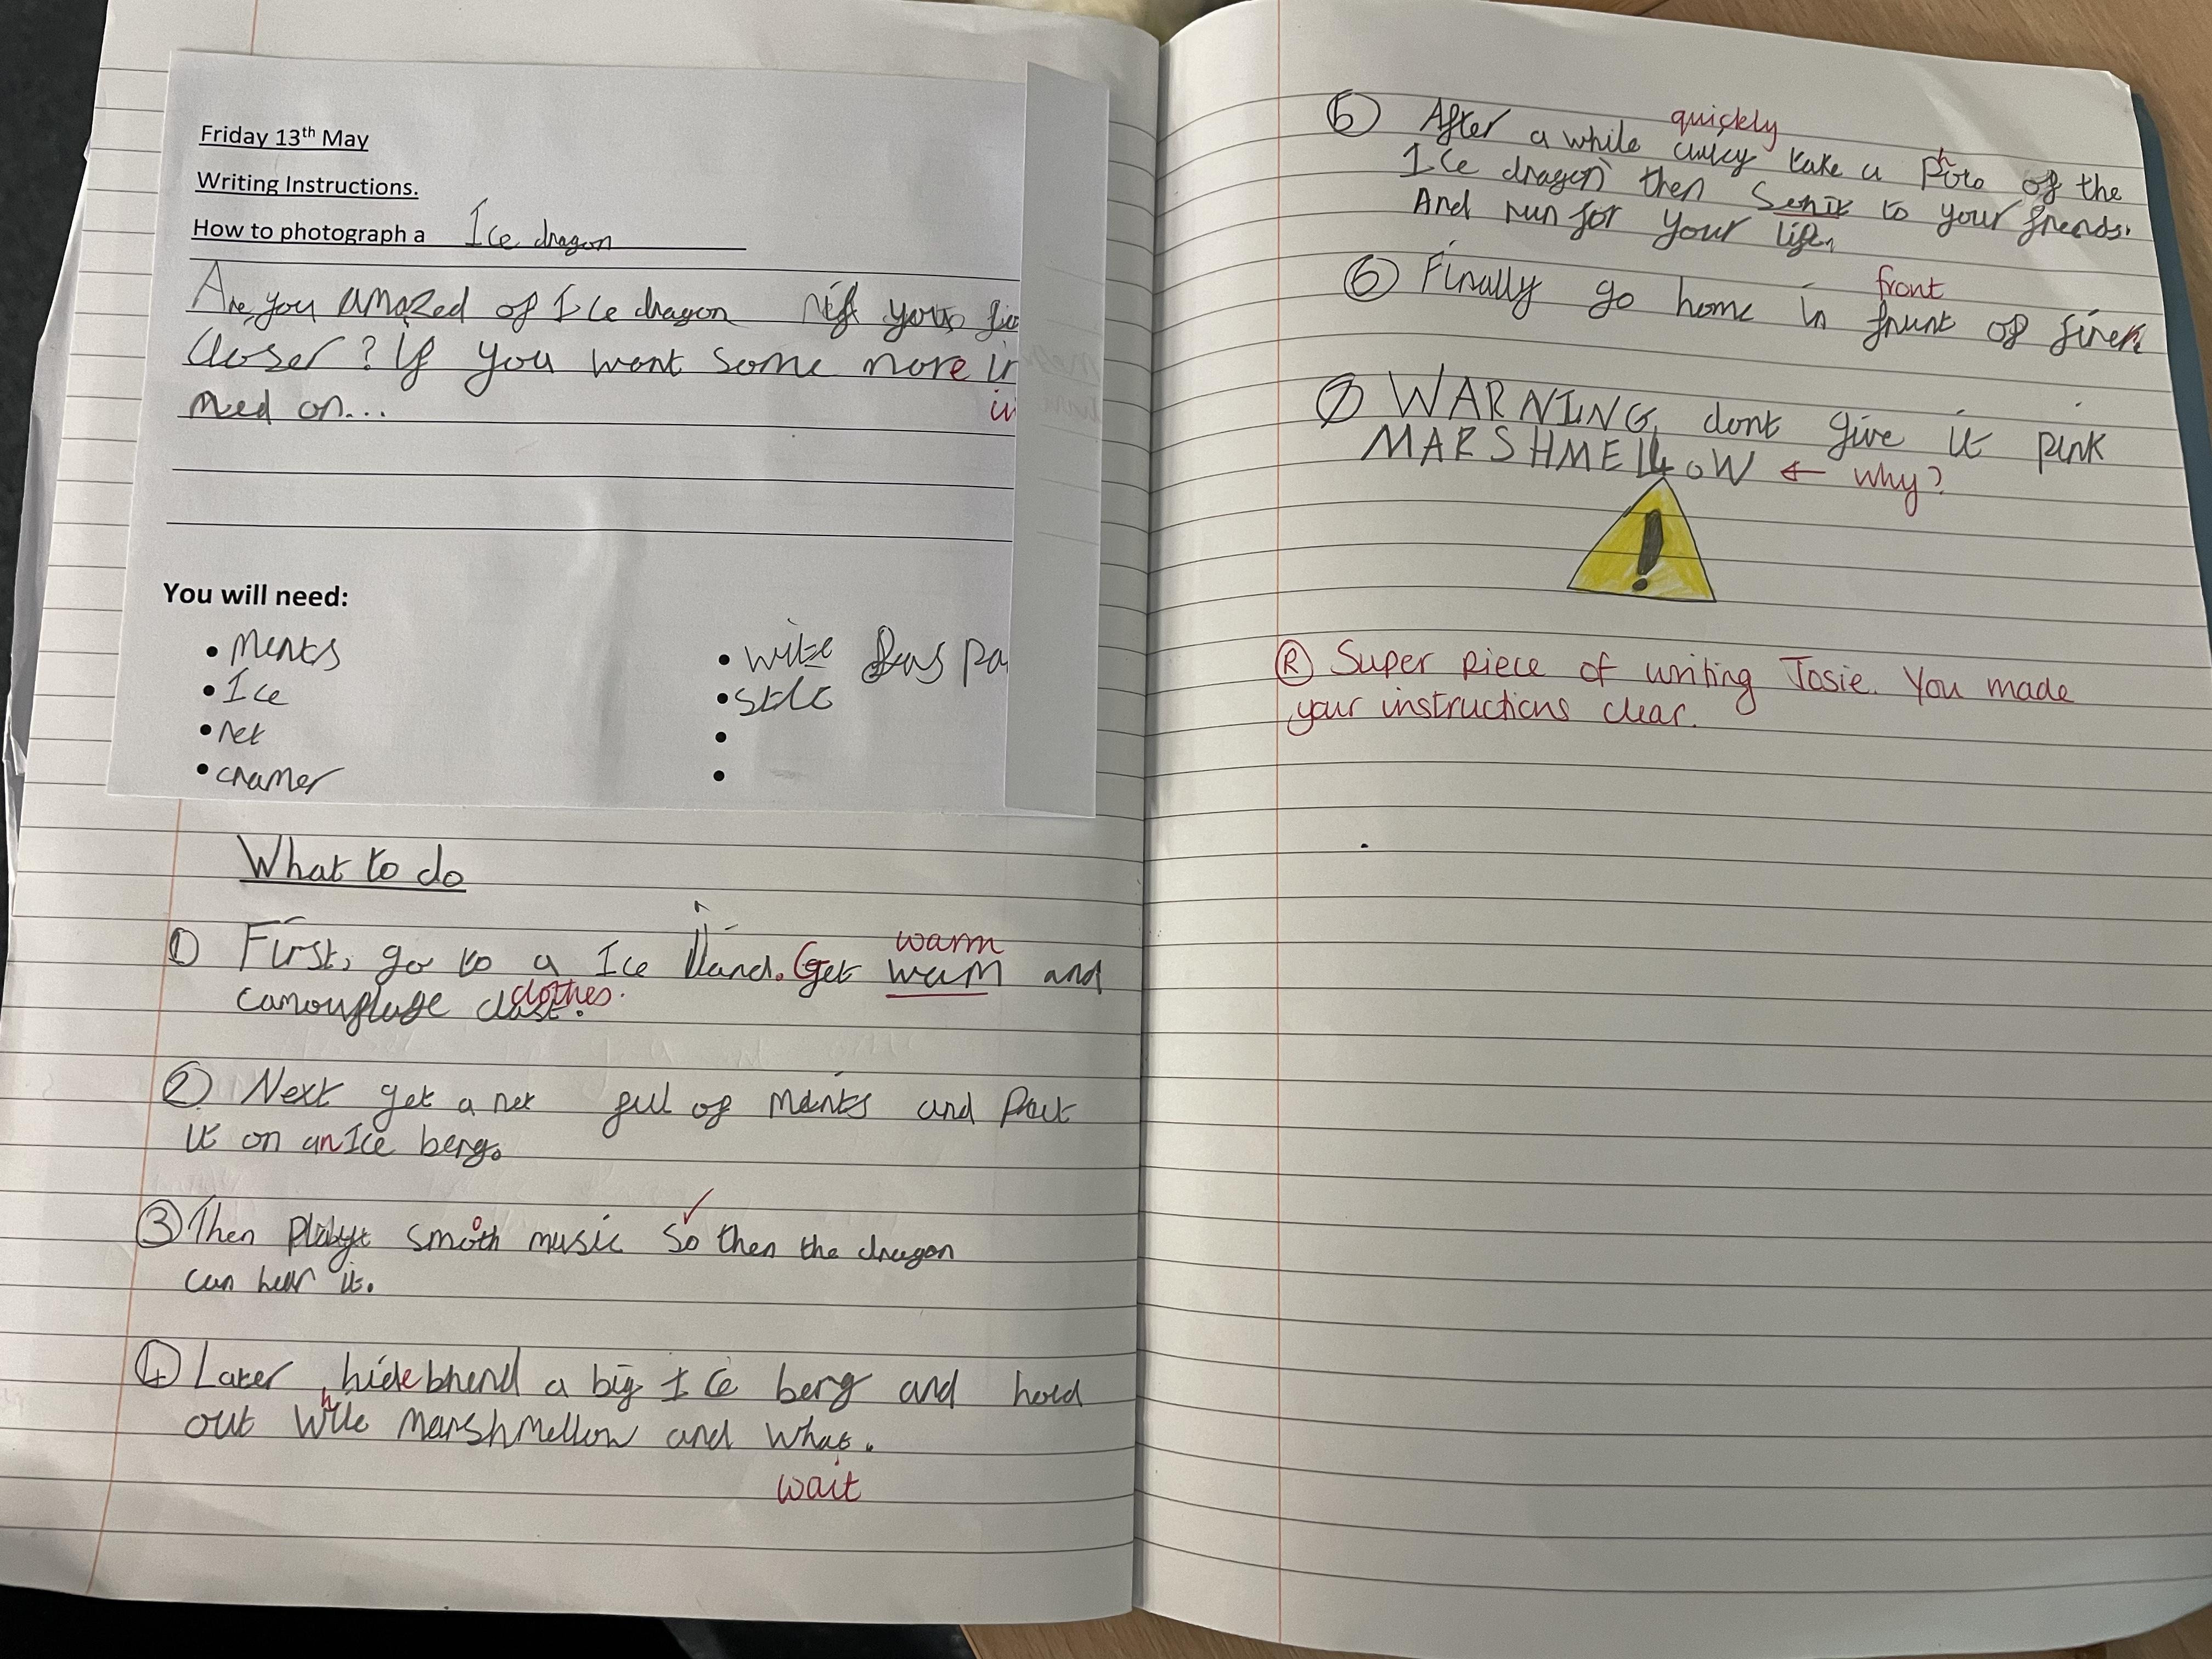 Friday 13th May
Writing Instructions.
How to photograph a Ice dragon
Are you amazed of Ice dragon
closer? If you want some more
on...
You will need:
• ments
• Ice
• net
• cramer
• wite
•
•
•
What to do
① First, go to a Ice land. Get wam warm and
camouflage clothes.
② Next get a net full of ments and
it on an Ice berg.
③ Then smooth music so ✓ then the dragon
can hear it.
④ Later hide bhend a big Ice berg and hold
out white marshmellow and what.
wait
⑤ After a while quickly take a photo of the
Ice dragon then to your frends.
And run for your life.
⑥ Finally go home in frunt front of
⑦ WARNING, dont give it pink
MARSHMELLOW ← why?
!
Ⓡ Super piece of writing Josie. You made
your instructions clear.